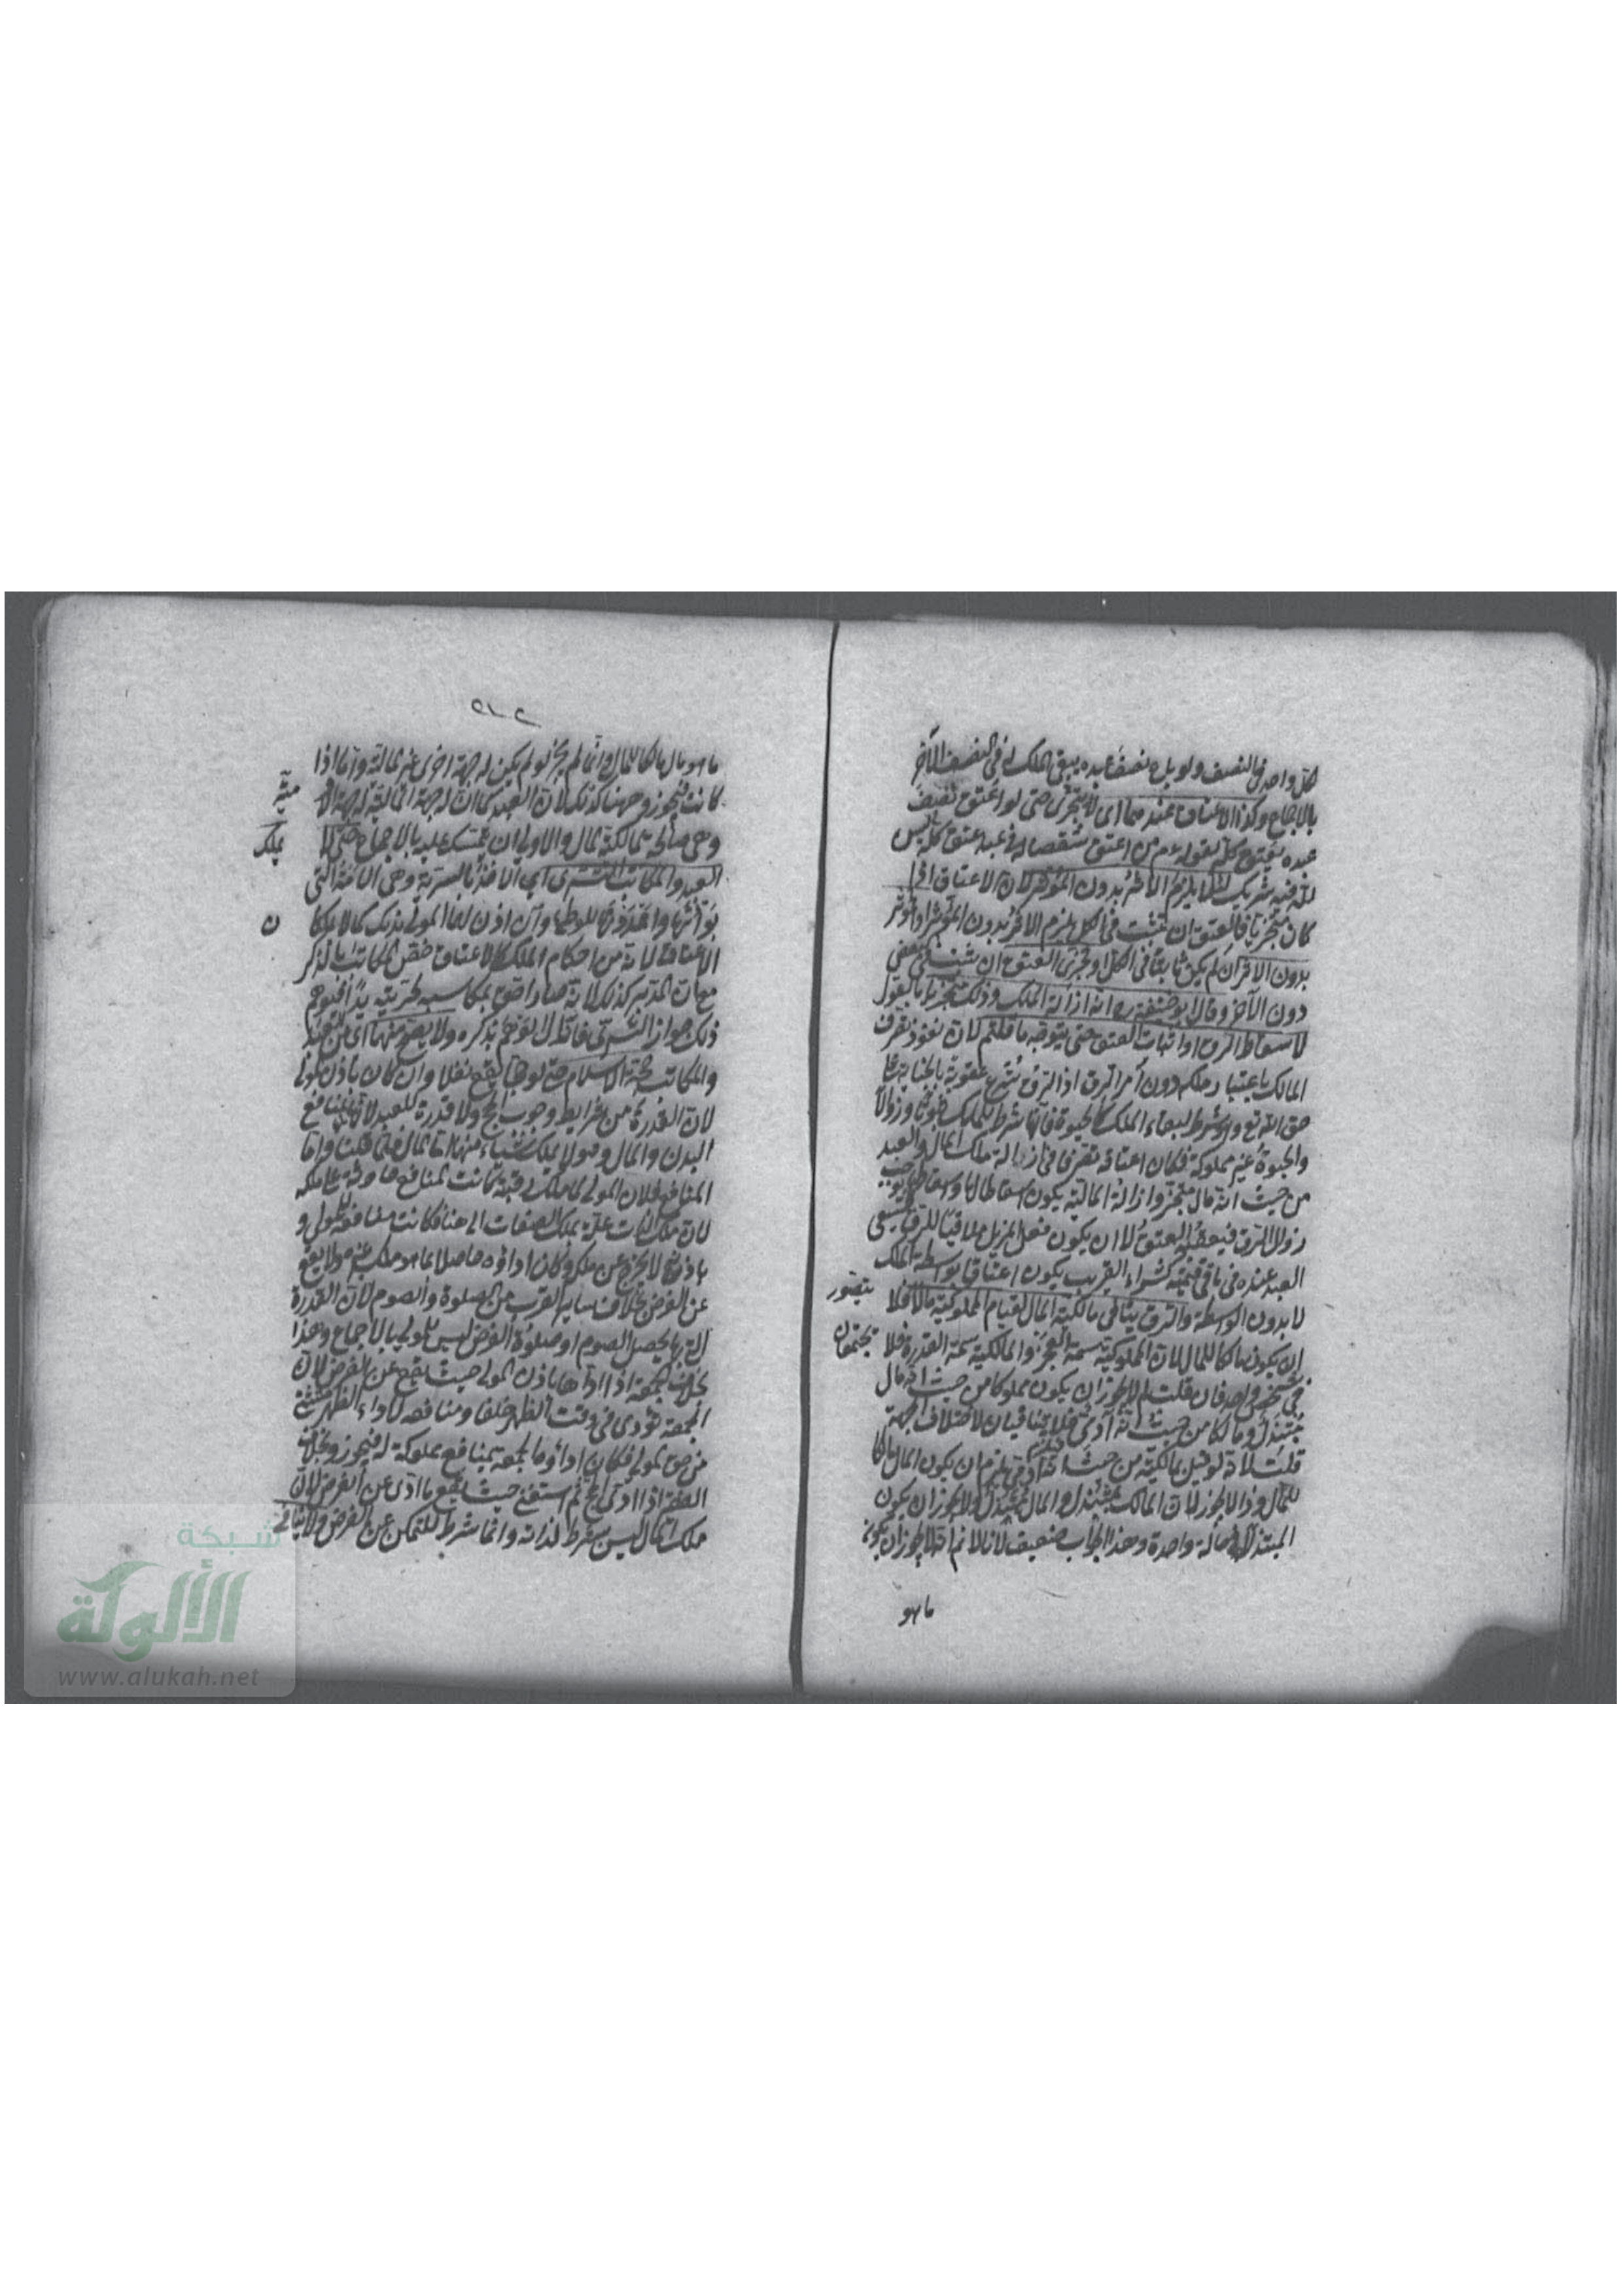 لكل واحد في النصف ولو باع نصف عبده يبقى الملك له في النصف الآخر
بالاجماع وكذا الاعتاق عندهما اى لا يتجزى حتى لو اعتق نصف
عبده يعتق كله لقوله عم من اعتق شقصا له في عبد عتق كله ليس
لله فيه شريك لئلا يلزم الاثر بدون المؤثر لان الاعتاق اذا
كان متجزيا فالعتق ان يثبت في الكل يلزم الاثر بدون المؤثر
بدون الاثر ان لم يكن ثابتا في الكل او تجزى العتق ان ثبت في بعض
دون الآخر وقال ابو حنيفة ره انه ازالة الملك وذلك متجز
لا اسقاط الرق او اثبات العتق حتى يتوجه ما قلتم لان نفوذ تصرف
المالك باعتبار ملكه دون امر الرق اذ الرق شرع عقوبة بالجناية على
حق الله تع وهو شرط لبقاء الملك كالحيوة فانها شرط للملك ثبوتا وزوالا
والحيوة غير مملوكة فكان اعتاقه تصرفا في ازالة ملك المال والعبد
من حيث انه مال متجز وازالة المالية يكون اسقاطا لها واسقاطها يوجب
زوال الرق فيعقبه العتق لا ان يكون فعل المزيل ملاقيا للرق فيسعى
العبد عنده في باقي قيمته كشراء القريب يكون اعتاقا بواسطة الملك
لا بدون الواسطة والرق ينافي مالكية المال لقيام المملوكية مالا فلا يتصور
ان يكون مالكا للمال لان المملوكية سمة العجز والمالكية سمة القدرة فلا يجتمعان
في شخص واحد فان قلت لم لا يجوز ان يكون مملوكا من حيث انه مال
مبتذل ومالكا من حيث انه آدمى فلا يتنافيان لاختلاف الجهة
قلت لانه لو قيل بمالكيته من حيث انه آدمى يلزم ان يكون المال مالكا
للمال وذا لا يجوز لان المالك مبتذل والمال مبتذل ولا يجوز ان يكون
المبتذل في حالة واحدة وهذا الجواب ضعيف لانا لا نم انه لا يجوز ان يكون
ما هو
ما هو مال مالكا للمال وانما لم يجز لو لم يكن له جهة اخرى غير مالية واما اذا
كانت فيجوز وههنا كذلك لان العبد كما ان له جهة المالية له جهة الآدمية
وهي صالحة لمالكية المال والاولى ان يتمسك عليه بالاجماع حتى لا يملك
العبد والمكاتب التسرى اى الاخذ بالسرية وهى الامة التى
بوأتها واعددتها للوطئ وان اذن لهما المولى بذلك كما لا يملكان
الاعتاق لانه من احكام الملك كالاعتاق خص المكاتب بالذكر
مع ان المدبر كذلك لانه صار احق بمكاسبه لحريته يدا فيوهم
ذلك جواز التسرى فازال الوهم بذكره ولا يصح منهما اى من العبد
والمكاتب حجة الاسلام حتى لو حجا يقع نفلا وان كان باذن المولى
لان القدرة من شرايط وجوب الحج ولا قدرة للعبد لانها بمنافع
البدن والمال وهو لا يملك شيئا منهما اما المال فلما قلنا واما
المنافع فلان المولى لما ملك رقبته كانت المنافع حادثة على ملكه
لان ملك الذات علة لملك الصفات الى هنا فكانت منافعه للمولى و
باذنه لا تخرج عن ملكه فكان اداؤه حاصلا بما هو ملك غيره فلا يقع
عن الفرض بخلاف ساير القرب من الصلوة والصوم لان القدرة
التى بها يحصل الصوم او صلوة الفرض ليس للمولى بالاجماع وهذا
بخلاف الجمعة اذا اداها باذن المولى حيث يقع عن الفرض لان
الجمعة تؤدى في وقت الظهر خلفا ومنافعه لاداء الظهر مستثنى
من حق المولى فكان اداؤه الجمعة بمنافع مملوكة له فيجوز وبخلاف
الفقير اذا ادى الحج ثم استغنى حيث يقع ما ادى عن الفرض لان
ملك المال ليس بشرط لذاته وانما شرط للتمكن عن الفرض ولا ينافي
شبكة
الألوكة
www.alukah.net